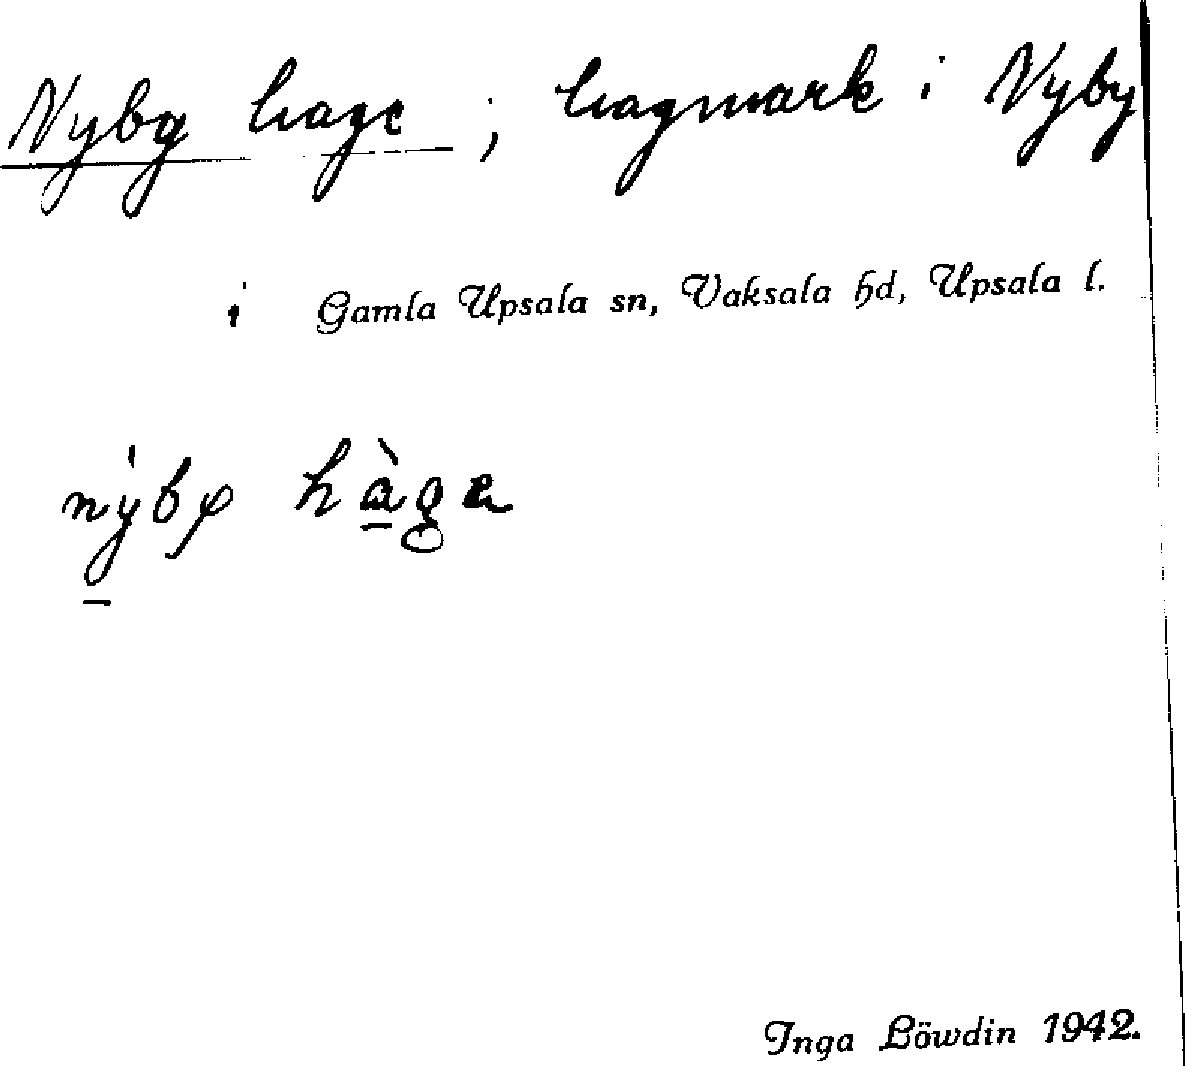 Nyby hage ; hagmark i Nyby
i Gamla Upsala sn, Vaksala hd, Upsala l.
Inga Löwdin 1942.